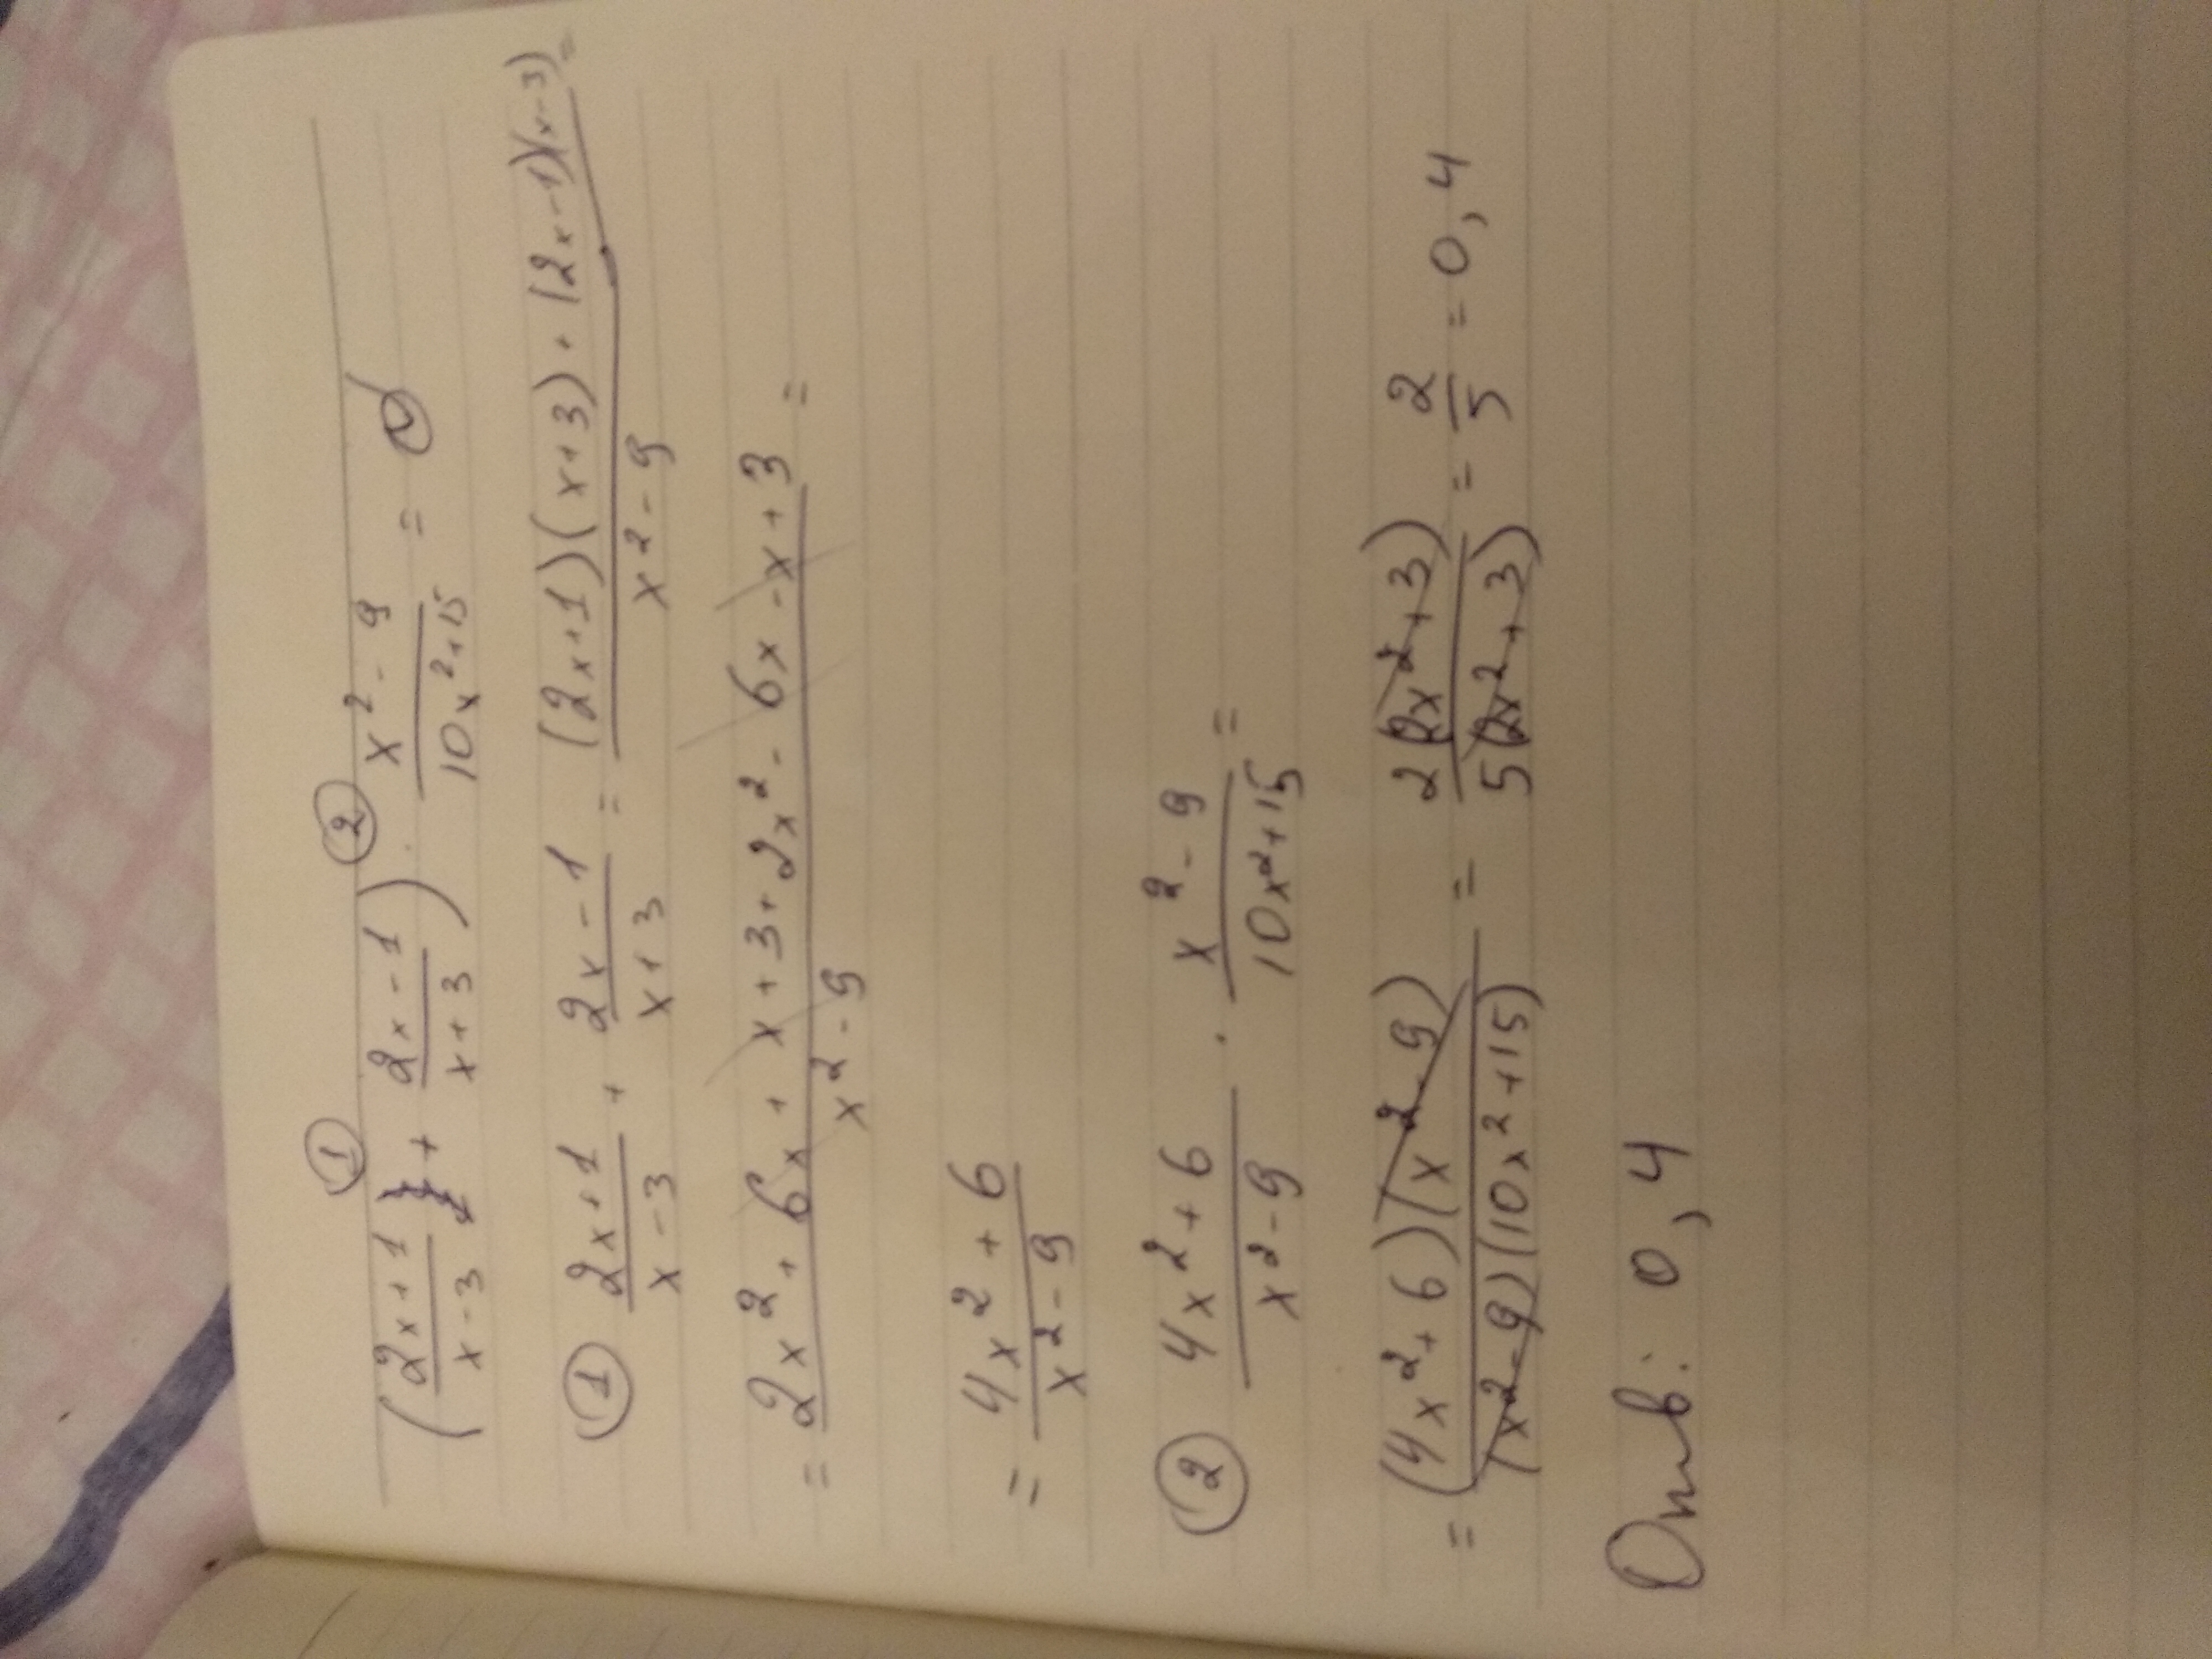 ① ②
(2x+1/x-3 + 2x-1/x+3) · x²-9/10x²+15 =
① 2x+1/x-3 + 2x-1/x+3 = (2x+1)(x+3)+(2x-1)(x-3)/x²-9 =
= 2x²+6x+x+3+2x²-6x-x+3/x²-9 =
= 4x²+6/x²-9
② 4x²+6/x²-9 · x²-9/10x²+15 =
= (4x²+6)(x²-9)/(x²-9)(10x²+15) = 2(2x²+3)/5(2x²+3) = 2/5 = 0,4
Отв: 0,4